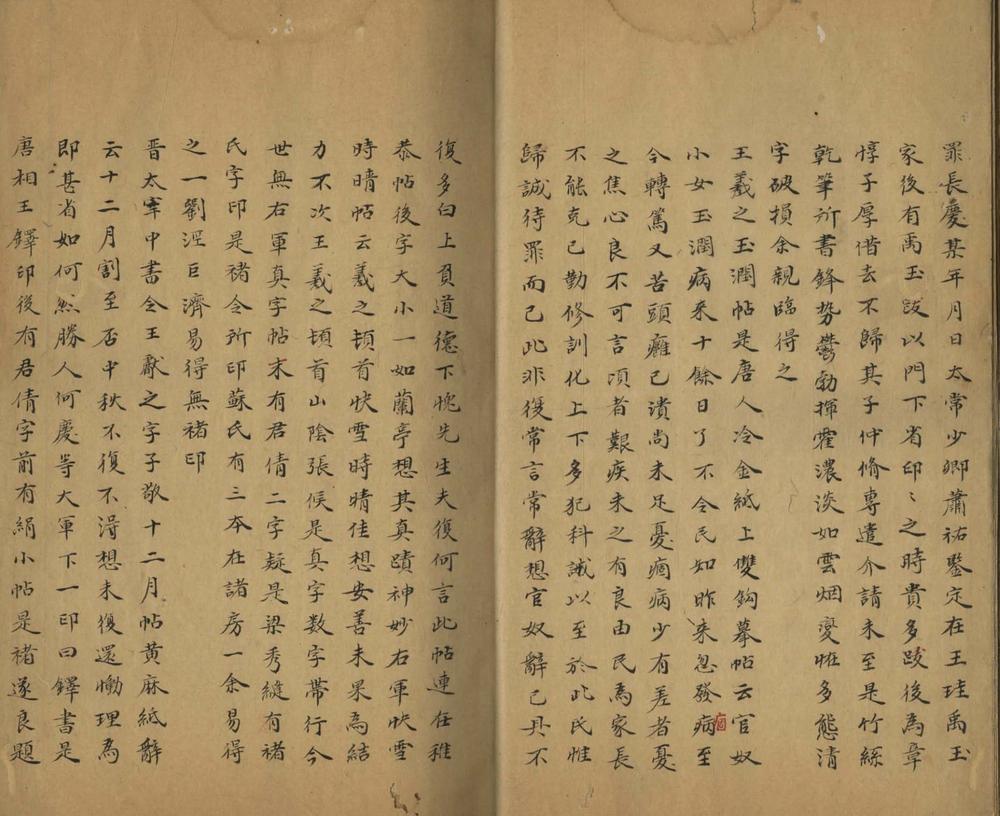 罪長慶某年月日太常少卿蕭祐鑒定在王珪禹玉
家後有禹玉跋以門下省印〻之時貴多跋後為章
惇子厚借去不歸其子仲脩專遣介請未至是竹絲
乾筆所書鋒勢鬱勃揮霍濃淡如雲烟變恠多態清
字破損余親臨得之
王羲之玉潤帖是唐人冷金紙上雙鉤摹帖云官奴
小女玉潤病来十餘日了不令民知昨来忽發痼至
今轉篤又苦頭癰已潰尚未足憂痼病少有差者憂
之焦心良不可言項者艱疾未之有良由民為家長
不能克己勤修訓化上下多犯科誡以至於此民惟
歸誠待罪而已此非復常言常辭想官奴辭已具不
復多白上負道德下愧先生夫復何言此帖連在稚
恭帖後字大小一如蘭亭想其真蹟神妙右軍快雪
時晴帖云羲之頓首快雪時晴佳想安善未果為結
力不次王羲之頓首山陰張候是真字数字帶行今
世無右軍真字帖末有君倩二字疑是梁秀縫有褚
氏字印是褚令所印蘇氏有三本在諸房一余易得
之一劉涇巨濟易得無褚印
晉太宰中書令王獻之字子敬十二月帖黄麻紙辭
云十二月割至否中秋不復不淂想未復還慟理為
即甚省如何然勝人何慶等大軍下一印曰鐸書是
唐相王鐸印後有君倩字前有絹小帖是褚遂良題